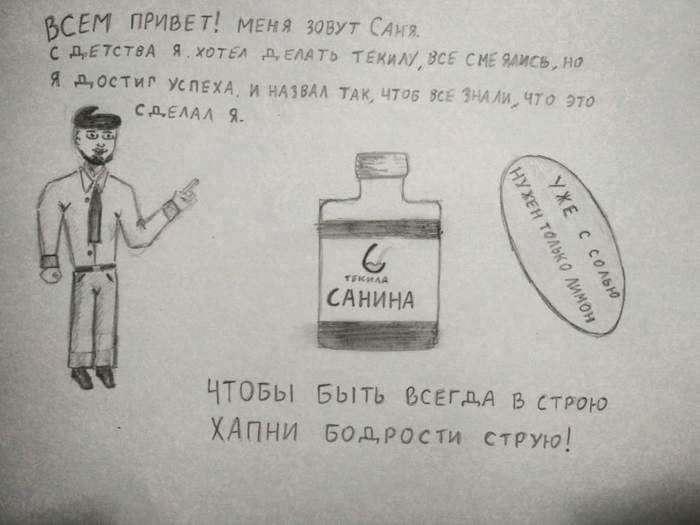 ВСЕМ ПРИВЕТ! МЕНЯ ЗОВУТ САНЯ.
С ДЕТСТВА Я ХОТЕЛ ДЕЛАТЬ ТЕКИЛУ, ВСЕ СМЕЯЛИСЬ, НО
Я ДОСТИГ УСПЕХА. И НАЗВАЛ ТАК, ЧТОБ ВСЕ ЗНАЛИ, ЧТО ЭТО
СДЕЛАЛ Я.
ТЕКИЛА
САНИНА
УЖЕ С СОЛЬЮ
НУЖЕН ТОЛЬКО ЛИМОН
ЧТОБЫ БЫТЬ ВСЕГДА В СТРОЮ
ХАПНИ БОДРОСТИ СТРУЮ!